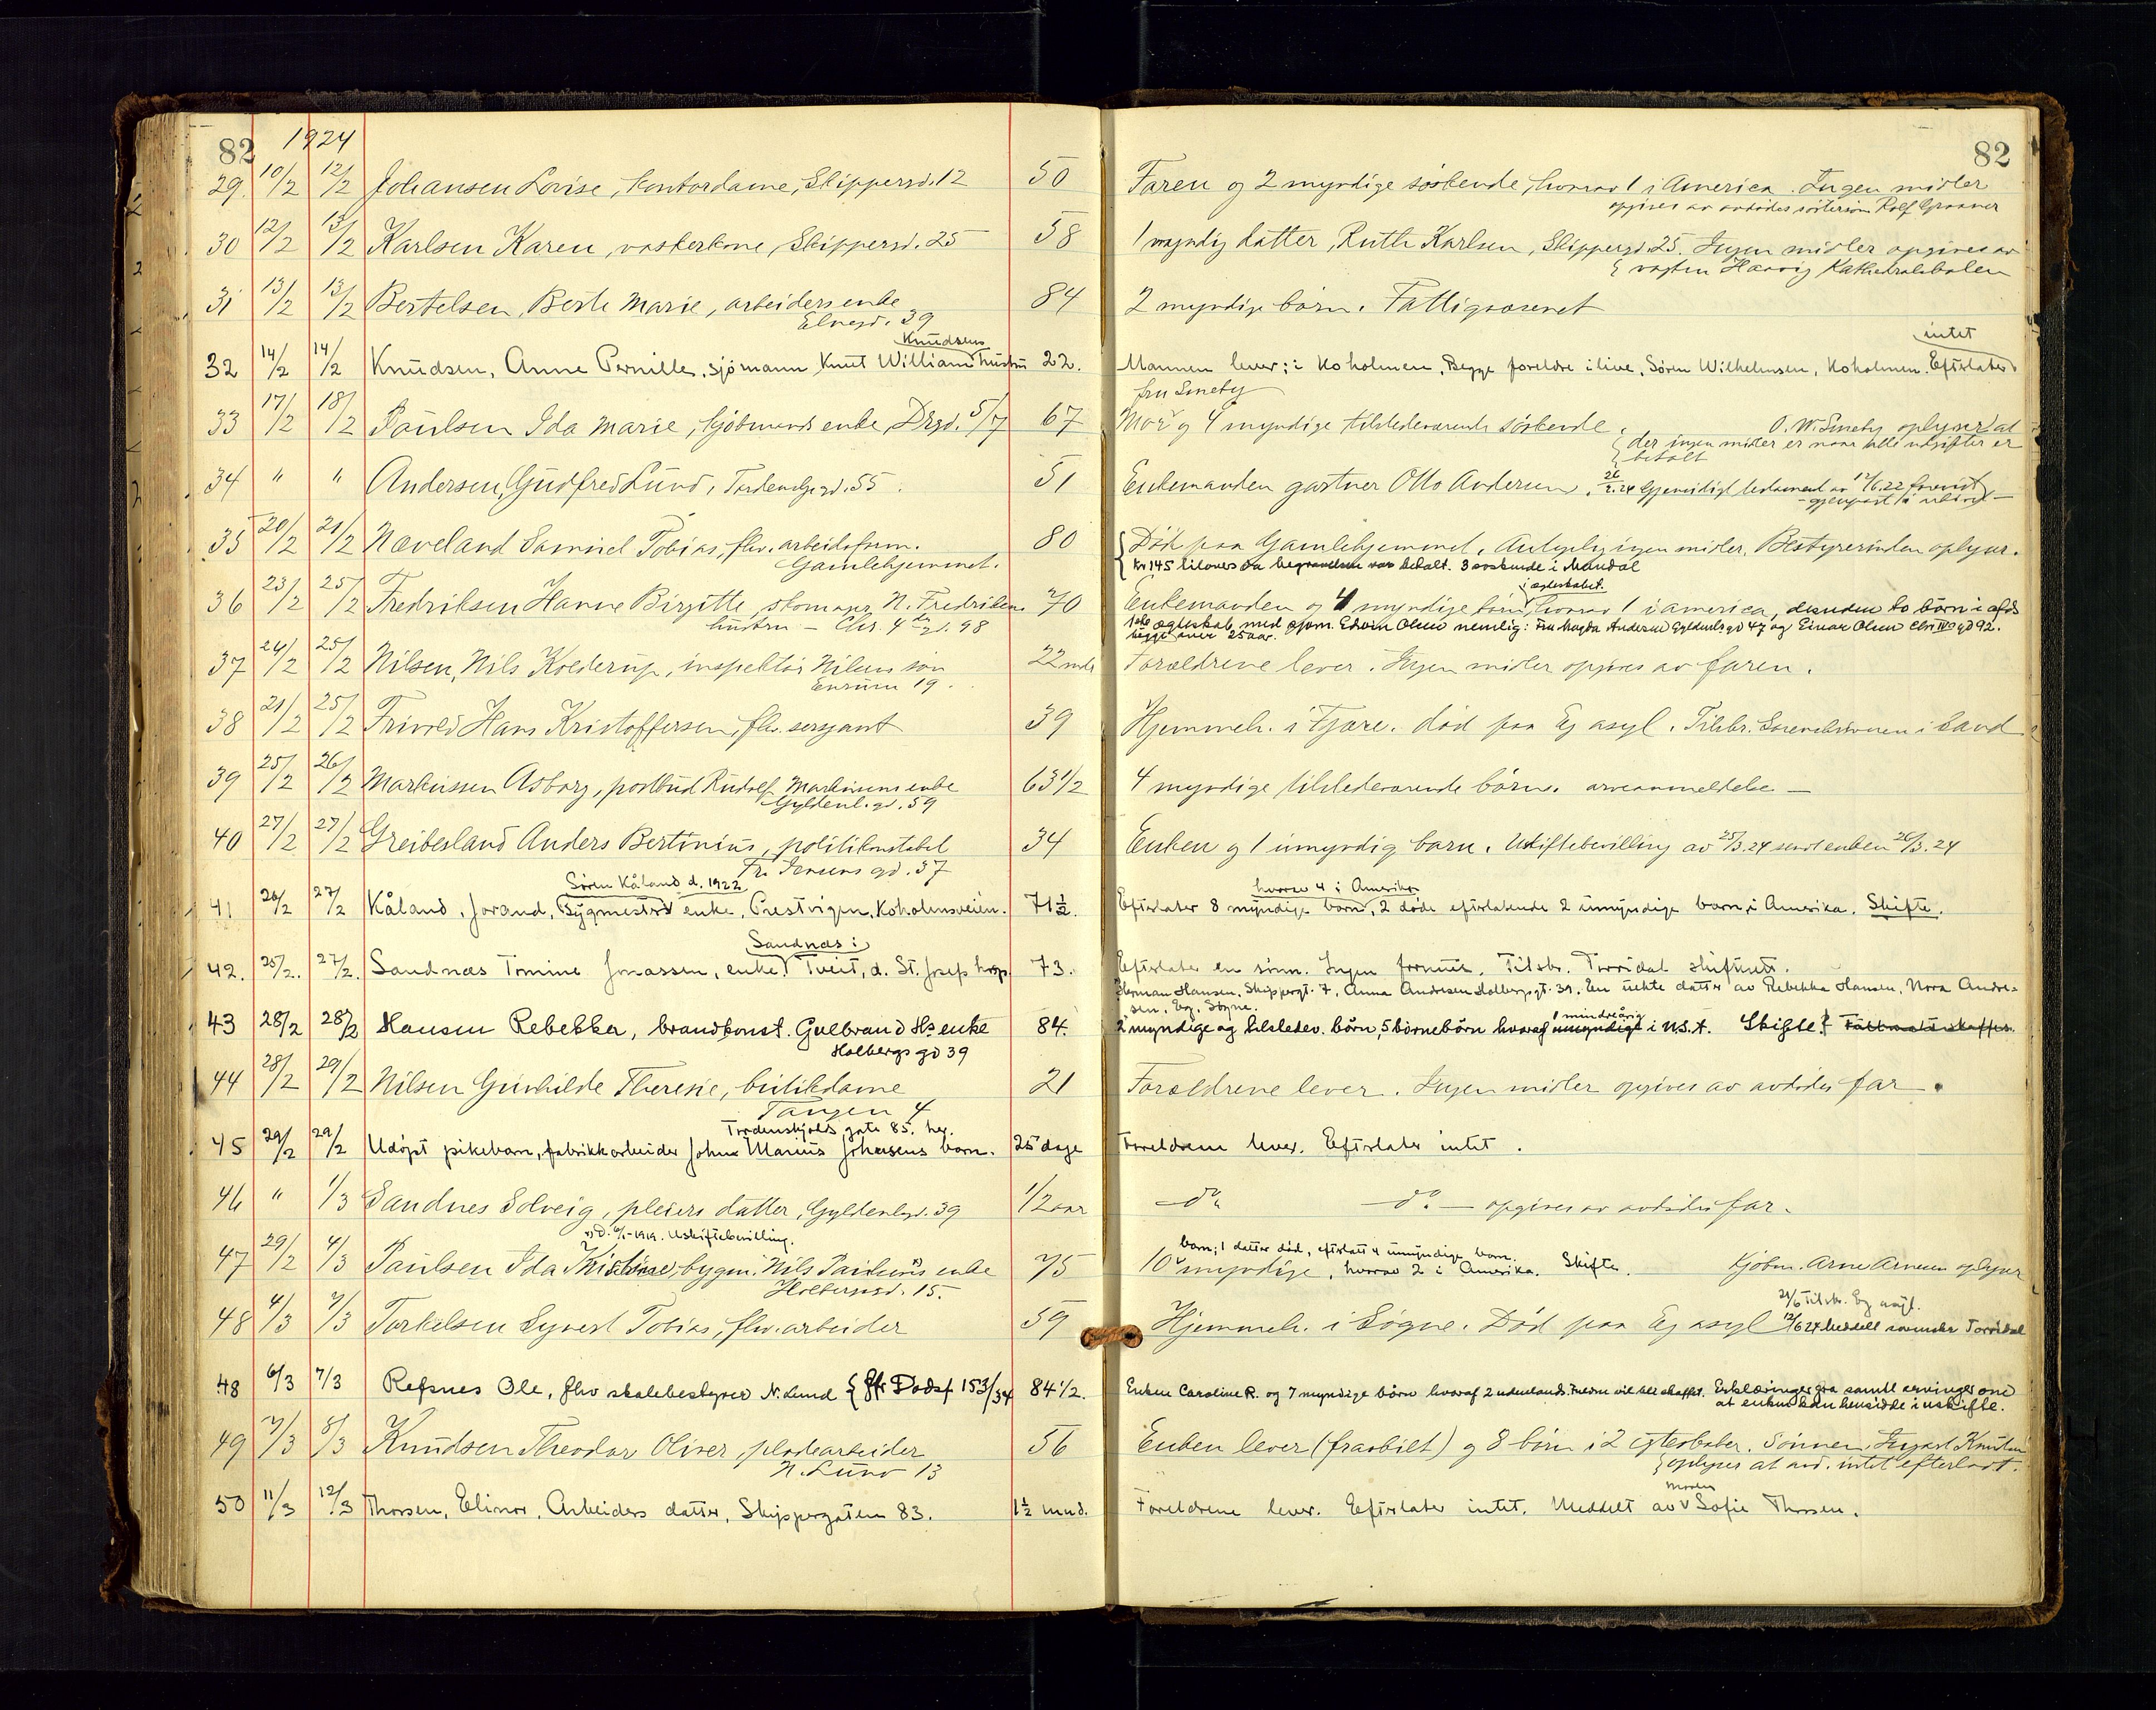 82 1924 82
29. 10/2 12/2 Johansen Lovise, kontordame, Skippergd. 12 50 Faren og 2 myndige søskende, hvorav 1 i America. Ingen midler
opgives av avdødes søstersøn Rolf
30 12/2 13/2 Karlsen Karen, vaskerkone, Skippergd. 25 58 1 myndig datter, Ruth Karlsen, Skippergd. 25. Ingen midler opgives av
vagtm Kathedralskolen
31 13/2 13/2 Bertelsen, Berte Marie, arbeidersenke 84 2 myndige børn. Fattigvæsenet
Elvegd. 39
Knudsens intet
32 14/2 14/2 Knudsen, Anne Pernille, sjømann Knut William hustru 22. Mannen lever; i Koholmen, Begge foreldre ilive, Søren Wilhelmsen, Koholmen. Efterlater
fru Smeby
33 17/2 18/2 Paulsen Ida Marie, kjøbmands enke, Drgd. 5/7 67 Mor og 4 myndige tilstedeværende søskende. O. W. Smeby oplyser at
der ingen midler er naar alle utgifter er
betalt
34 " " Andersen, Gudfred Lund, Tordenskj.gd. 55. 51 Enkemanden gartner Otto Andersen. 26/2.24 Gjensidigt testament av 12/6.22 forevist
- gjenpart i
35 20/2 21/2 Næveland Samuel Tobias, fhv. arbeidsform. 80 Død paa Gamlehjemmet. Antagelig ingen midler, Bestyrerinden oplyser.
Gamlehjemmet. kr 145 tilovers da begravelsen var betalt. 3 søskende i Mandal
i ægteskabet
36 23/2 25/2 Fredriksen Hanne Birgitte, skomager N. Fredriksens 70 Enkemanden og 4 myndige børn, hvorav 1 i america, desuden to børn i afds
hustru - Chr. 4 des gd. 98 1ste ægteskab med sjøm. Edvin Olsen nemlig: fru Magda Andersen Gyldenls gd 47 og Einar Olsen Chr IVs gd 92.
begge over 25 aar.
37 24/2 25/2 Nilsen, Nils Kolderup, inspektør Nilsens søn 22 mdr Forældrene lever. Ingen midler opgives av faren.
Enrum 19.
38 21/2 25/2 Trivold Hans Kristoffersen, fhv. sersjant 39 Hjemmeh. i Tjøre. død paa Eg asyl. Tilskr. Sorenskriveren i Sand
39 25/2 26/2 Markussen Asborg, postbud Rudolf Markussens enke 63 1/2 4 myndige tilstedeværende børn. arveanmeldelse -
Gyldenl. gd. 59
40 27/2 27/2 Greibesland Anders Bertinius, politikonstabel 34 Enken og 1 umyndig barn. Uskiftebevilling av 25/3.24 sendt enken 26/3.24
Tr. Jensens gd. 37
Søren Kåland d. 1922 hvorav 4 i Amerika
41 26/2 27/2 Kåland, Jorand, Bygmesters enke, Prestvigen, Koholmsveien. 71 1/2. Efterlater 8 myndige børn, 2 døde efterlatende 2 umyndige barn i Amerika. Skifte.
Sandnes i
42. 25/2. 27/2. Sandnæs Tomine Jonassen, enke. Tveit, d. St. Josefs hosp. 73. Efterlater en sønn. Ingen formue. Tilskr. Torridal skifterett.
Herman Hansen, Skippergt. 7, Anna Andresen Holbergsgt. 39. En uekte datter av Rebekka Hansen, Nora Andre-
sen, Eg, Søgne. 1 mindreårig
43 28/2 28/2 Hansen Rebekka, brandkonst. Gulbrand Hs enke 84. 2 myndige og tilstedev. børn, 5 børnebørn hvoraf umyndigt i U.S.A. Skifte?
Holbergs gd 39
44 28/2 29/2 Nilsen Gunhilde Therese, butikdame 21 Forældrene lever. Ingen midler opgives av avdødes far.
Tangen 4
Tordenskjolds gate 85. her.
45 29/2 29/2 Udøpt pikebarn, fabrikkarbeider Johan Marius Johnsens barn. 25 dage Foreldrene lever. Efterlater intet.
46 " 1/3 Sandnes Solveig, pleiers datter, Gyldenlgd. 39 1/2 aar - do - - do - opgives av avdødes far.
x) D. 6/1-1919. Uskiftebevilling. barn; 1 datter død, efterlatt 4 umyndige barn.
47 29/2 4/3 Paulsen Ida Kristine, bygm. Nils Paulsens enke 75 10 myndige, hvorav 2 i Amerika. Skifte. Kjøbm. Arne Arnesen oplyser
Holbergsgd. 15. 21/6 Tilskr. Eg asyl.
48 4/3 7/3 Torkelsen Syvert Tobias, fhv. arbeider 59 Hjemmeh. i Søgne. Død paa Eg asyl 12/6 24 meddelt sorenskr Torridal
48 6/3 7/3 Refsnes Ole, fhv skolebestyrer N. Lund { ffr Dødsf 153/34 84 1/2. Enken Caroline R. og 7 myndige børn hvoraf 2 udenlands. vil bli skaffet. Erklæringer fra samtl arvinger om
at enken kan hensidde i uskifte.
49 7/3 8/3 Knudsen Theodor Oliver, pladearbeider 56 Enken lever (fraskilt) og 8 børn i 2 egteskaber. Sønnen, Knudsen
N. Lund 13 oplyser at avd. intet efterlot.
moren
50 11/3 12/3 Thorsen, Elinor, Arbeiders datter, Skippergaten 83. 1 1/2 mnd. Foreldrene lever. Efterlater intet. Meddelt av Sofie Thorsen.